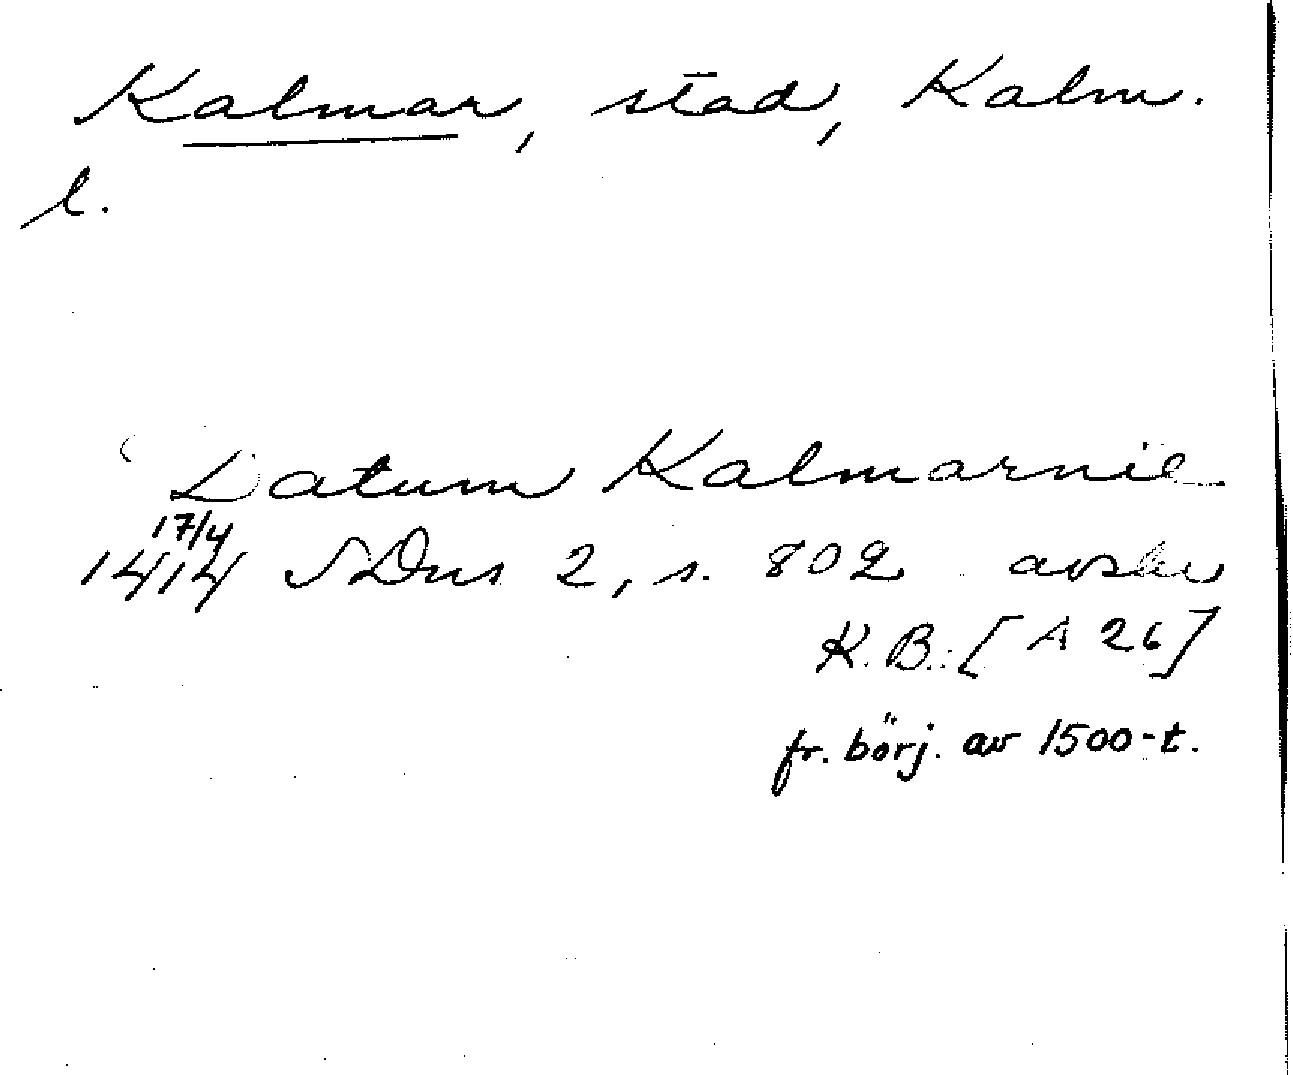 Kalmar, stad, Kalm.
l.
Datum Kalmarnie
17/4
1414 SDns 2, s. 802 avskr
K.B. [A 26]
fr. börj. av 1500-t.